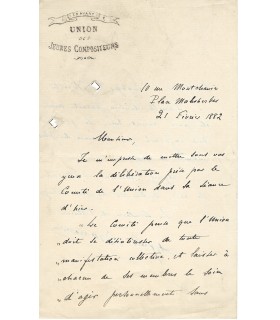 UNION
DES
JEUNES COMPOSITEURS
10 rue Montchanin
Place Malesherbes
21 Février 1882
Monsieur,
Je m'empresse de mettre sous vos
yeux la délibération prise par le
Comité de l'Union dans la séance
d'hier.
"Le Comité pense que l'Union
"doit se désintéresser de toute
"manifestation collective, et laisser à
"chacun de ses membres le soin
"d'agir personnellement sans